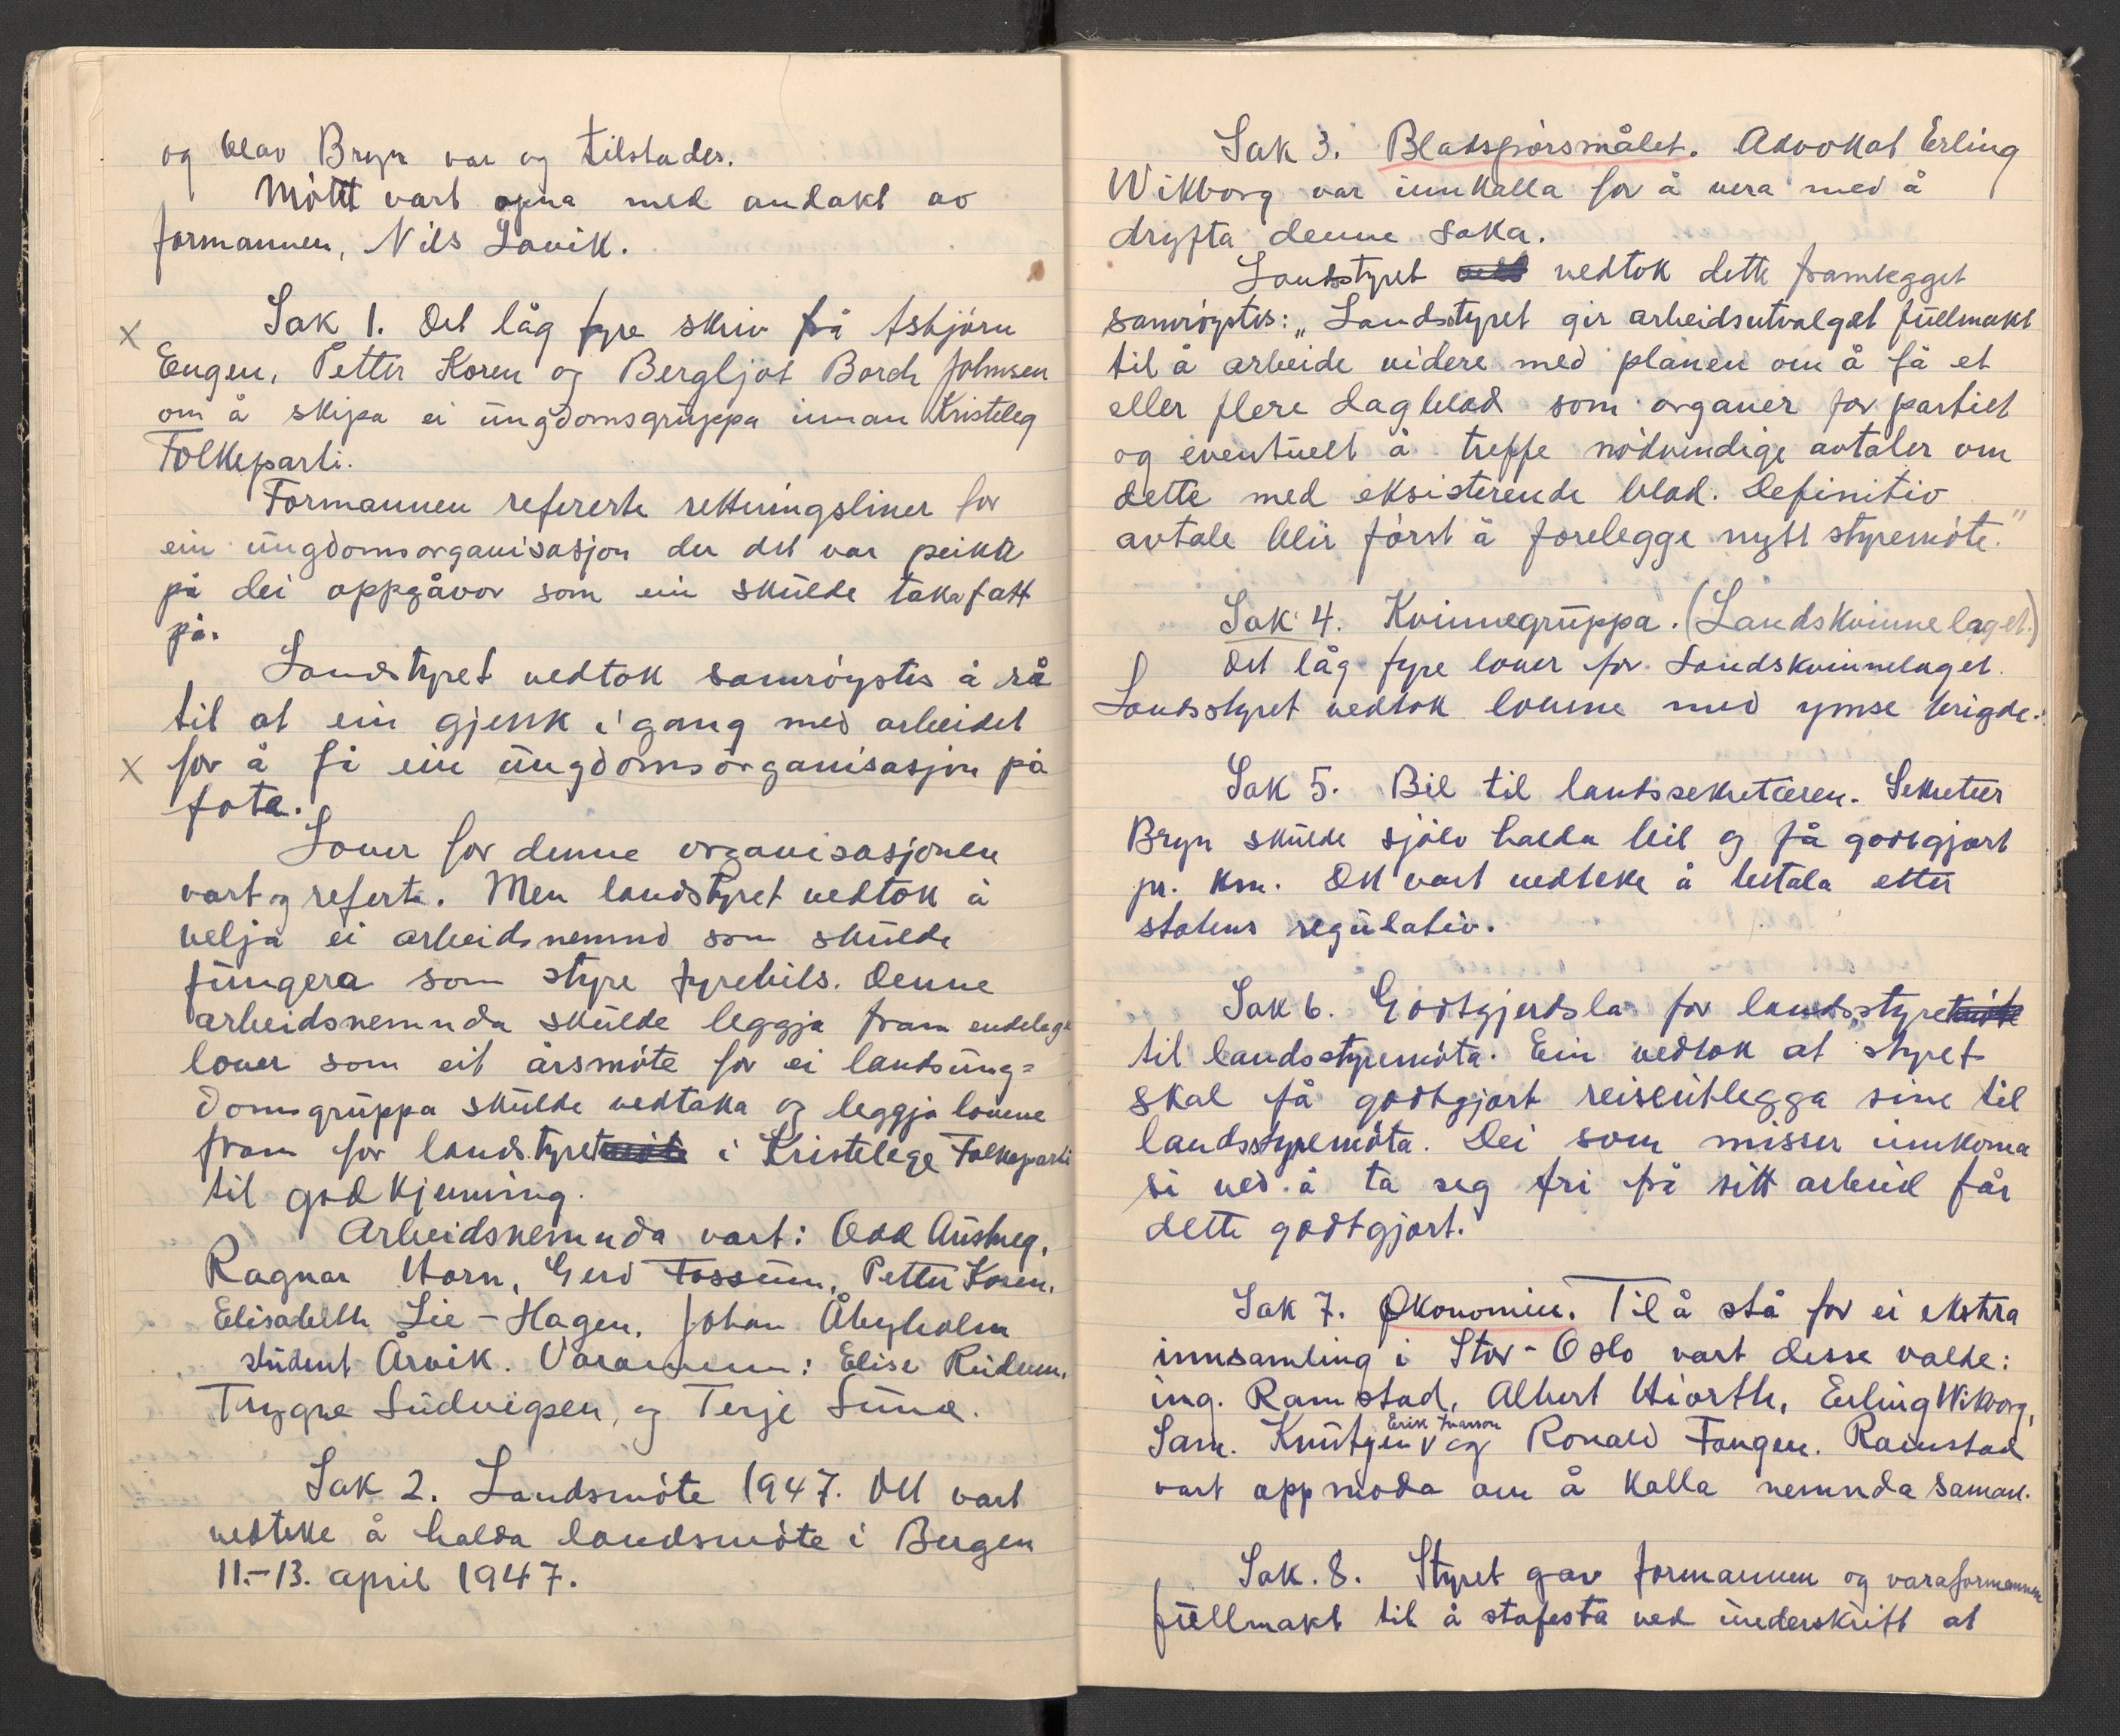 og Olav Bryn var og tilstades.
Møtet vart opna med andakt av
formannen, Nils Lavik.
Sak 1. Det låg fyre skriv frå Asbjørn
Engen, Petter Koren og Bergljot Borch Johnsen
om å skipa ei ungdomsgruppa innan Kristeleg
Folkeparti.
Formannen refererte rettningsliner for
ein ungdomsorganisasjon der det var peika
på dei oppgåvor som ein skulde taka fatt
på.
Landstyret vedtok samrøystes å rå
til at ein gjekk i gang med arbeidet
for å få ein ungdomsorganisasjon på
fote.
Lover for denne organisasjonen
vart og referte. Men landstyret vedtok å
velja ei arbeidsnemnd som skulde
fungera som styre fyrebils. Denne
arbeidsnemnda skulde leggja fram endelege
lover som eit årsmøte for ei landsung=
domsgruppa skulde vedtaka og leggja lovene
fram for landstyret i Kristelege Folkeparti
til godkjenning.
Arbeidsnemnda vart: Odd
Ragnar Horn, Gerd Fossum, Petter Koren,
Elisabeth Lie-Hagen, Johan Åbyholm
student Årvik. Varamenn: Elise
Trygve Ludvigsen, og Terje
Sak 2. Landsmøte 1947. Det vart
vedteke å halda landsmøte i Bergen
11.-13. april 1947.
Sak 3. Bladspørsmålet. Advokat Erling
Wikborg var innkalla for å vera med å
drøfta denne saka.
Landsstyret vedtok dette framlegget
samrøystes: „Landsstyret gir arbeidsutvalget fullmakt
til å arbeide videre med planen om å få et
eller flere dagblad som organer for partiet
og eventuelt å treffe nødvendige avtaler om
dette med eksisterende blad. Definitiv
avtale blir først å forelegge nytt styremøte."
Sak 4. Kvinnegruppa. (Landskvinnelaget.)
Det låg fyre lover for Landskvinnelaget.
Landsstyret vedtok lovene med ymse brigde.
Sak 5. Bil til landssekretæren. Sekretær
Bryn skulde sjølv halda bil og få godtgjort
pr. km. Det vart vedteke å betala etter
statens regulativ.
Sak 6. Godtgjerdsla for landsstyret
til landsstyremøta. Ein vedtok at styret
skal få godtgjort reiseutlegga sine til
landsstyremøta. Dei som misser innkoma
si ved å ta seg fri frå sitt arbeid får
dette godtgjort.
Sak 7. Økonomien. Til å stå for ei ekstra
innsamling i Stor-Oslo vart desse valde:
ing. Ramstad, Albert Hiorth, Erling Wikborg,
Sam. Knutzen, Erik Ivarson og Ronald Fangen. Ramstad
vart oppmoda om å kalla nemnda saman.
Sak. 8. Styret gav formannen og varaformannen
fullmakt til å stafesta ved underskrift at